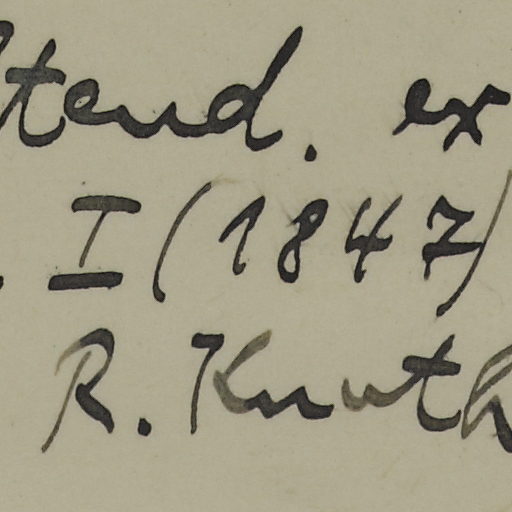 Steud. ex
. I (1847)
R. Knuth